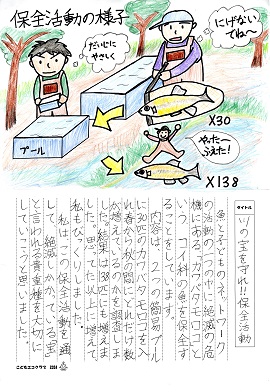 保全活動の様子
だいじに
やさしく
にげない
でね〜
プール
X30
やったー
ふえた!
X138
タイトル
川の宝を守れ!!保全活動
魚と子どものネットワーク
の活動の一つの中に絶滅の危
機にある、カワバタモロコと
いうコイ科の魚を保全す
ることをしています。
内容は、一つの簡易プール
に30匹のカワバタモロコを入
れ春から秋の間にどれだけ数
が増えているのかを調査しま
した。結果は138匹にも増えま
した。思ってた以上に増えて
私もびっくりしました。
私はこの保全活動を通
して、絶滅しかけている「宝」
と言われる貴重種を大切に
していこうと思いました。
こどもエコクラブ